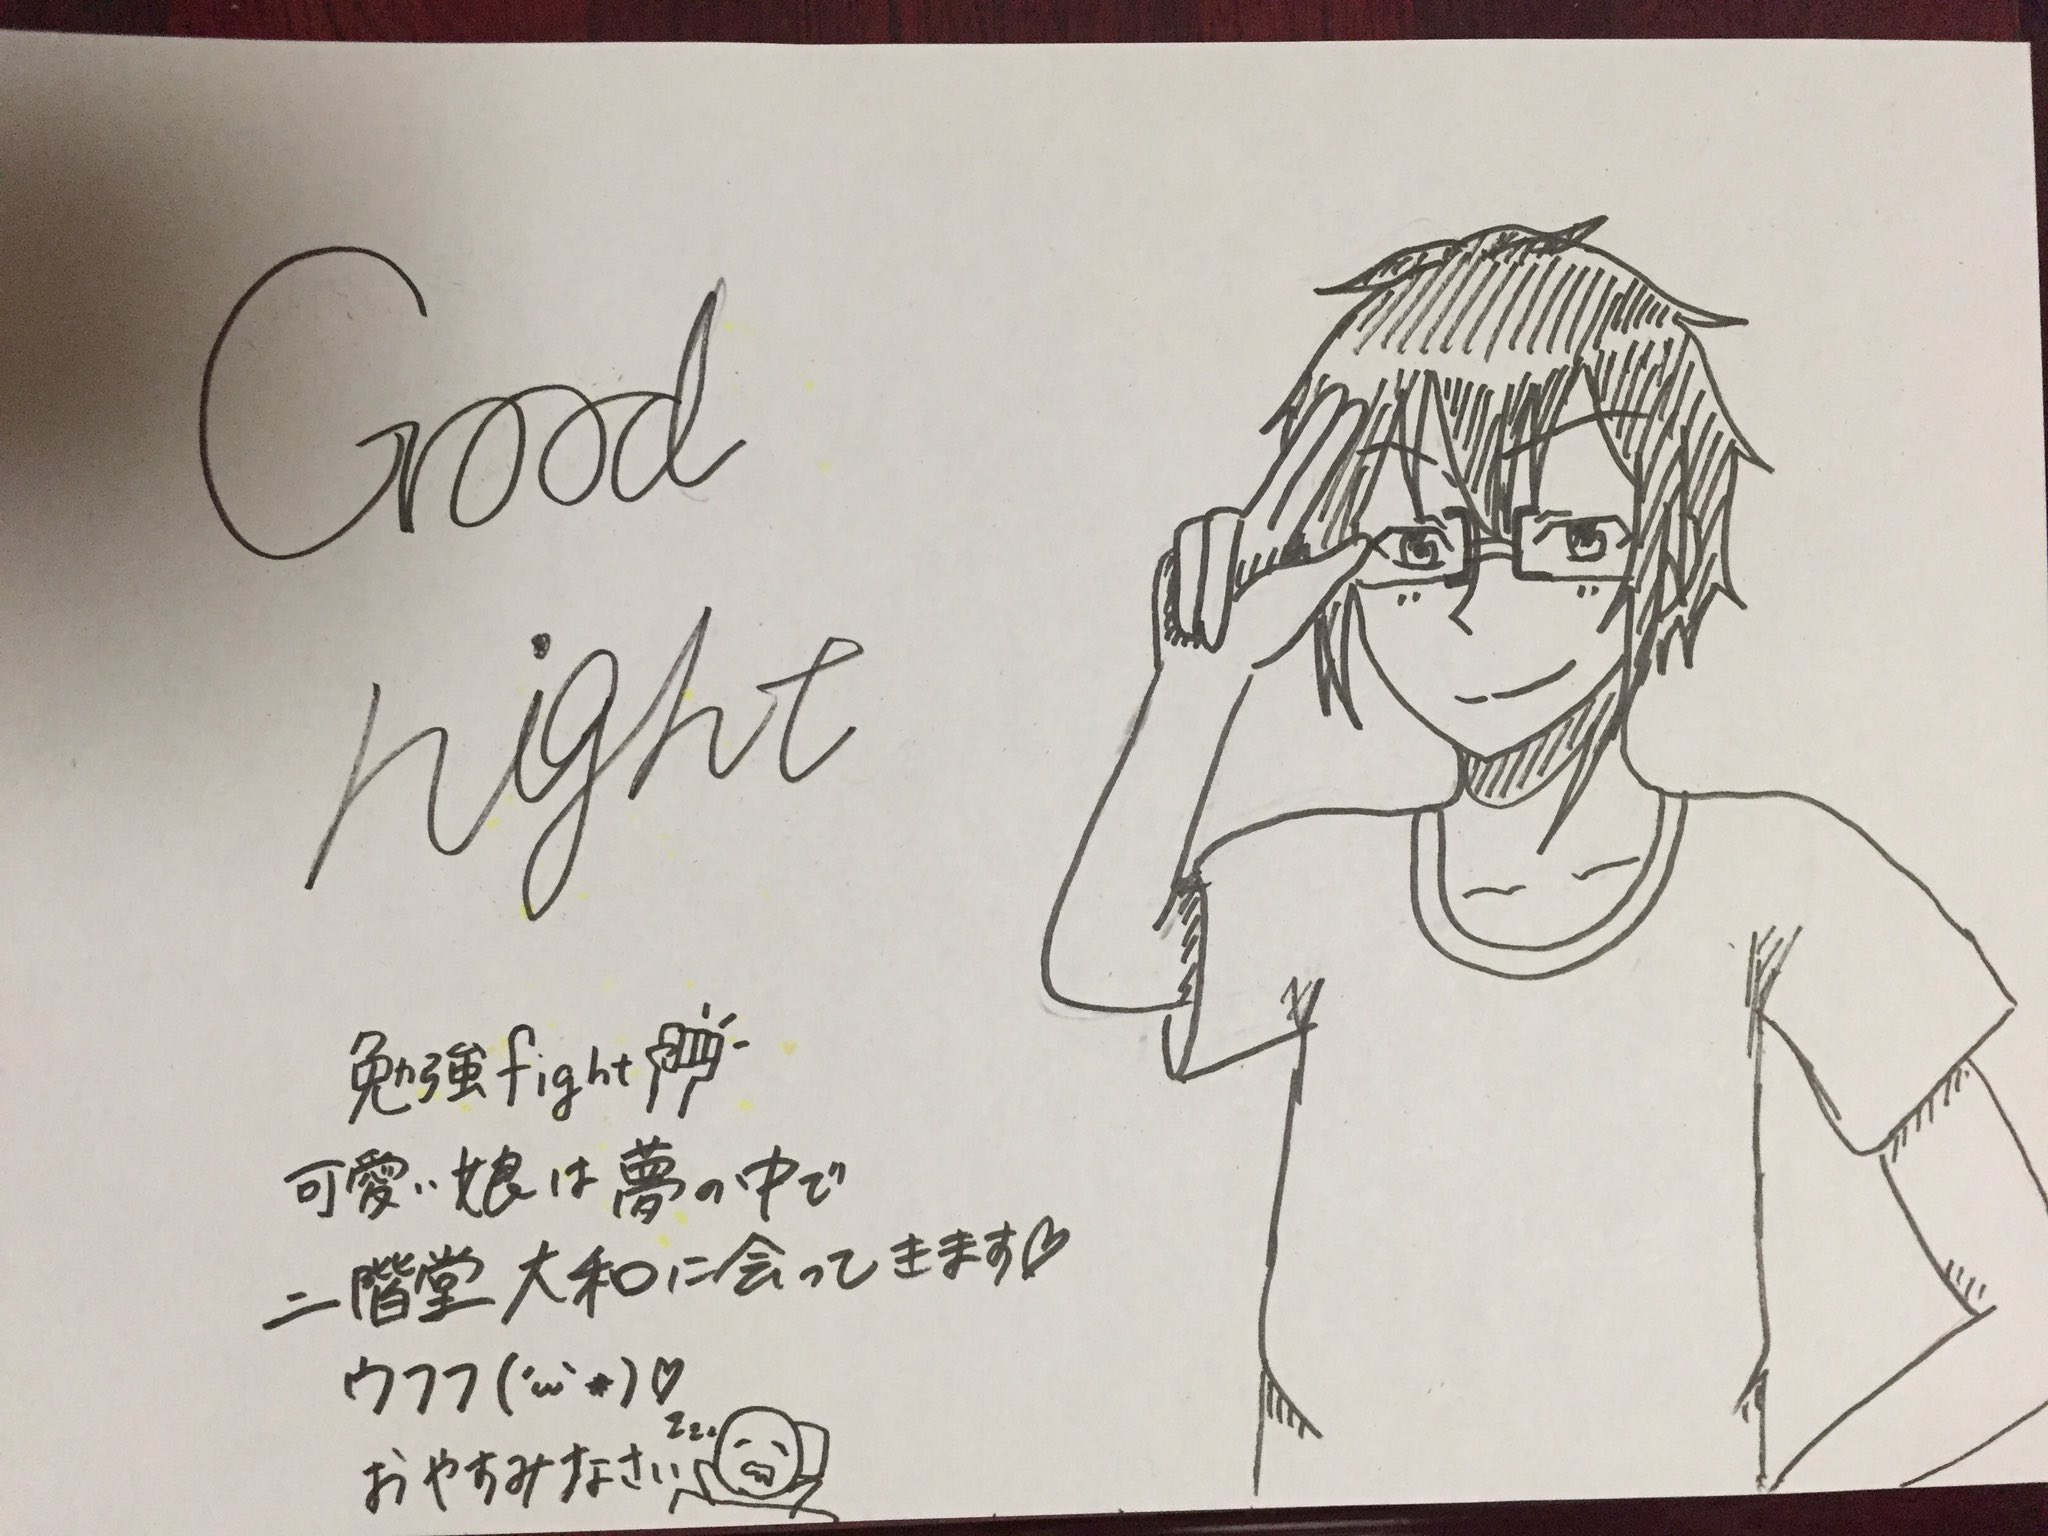 Good
night
勉強fight
可愛い娘は夢の中で
二階堂大和に会ってきます♡
ウフフ(´ω`*)♡
おやすみなさい
zzz